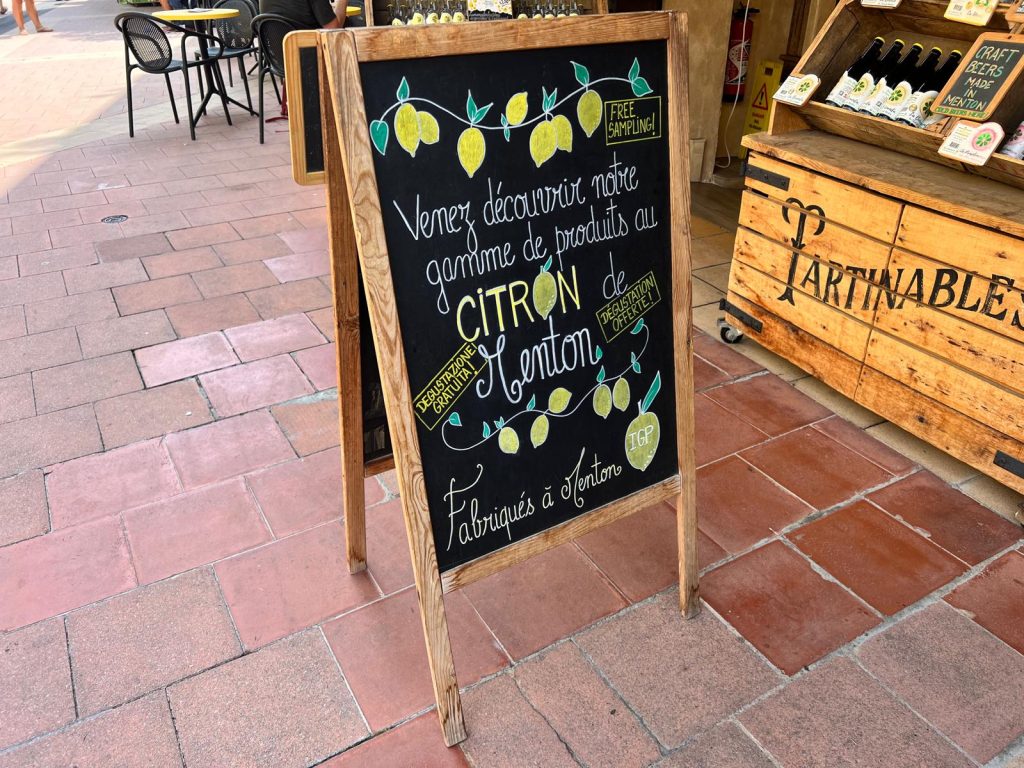 FREE
SAMPLING!
Venez découvrir notre
gamme de produits au
CiTRON de
DÉGUSTATION
OFFERTE!
DEGUSTAZIONE
GRATUITA!
Menton
IGP
Fabriqués à Menton
CRAFT
BEERS
MADE
IN
MENTON
TARTINABLES